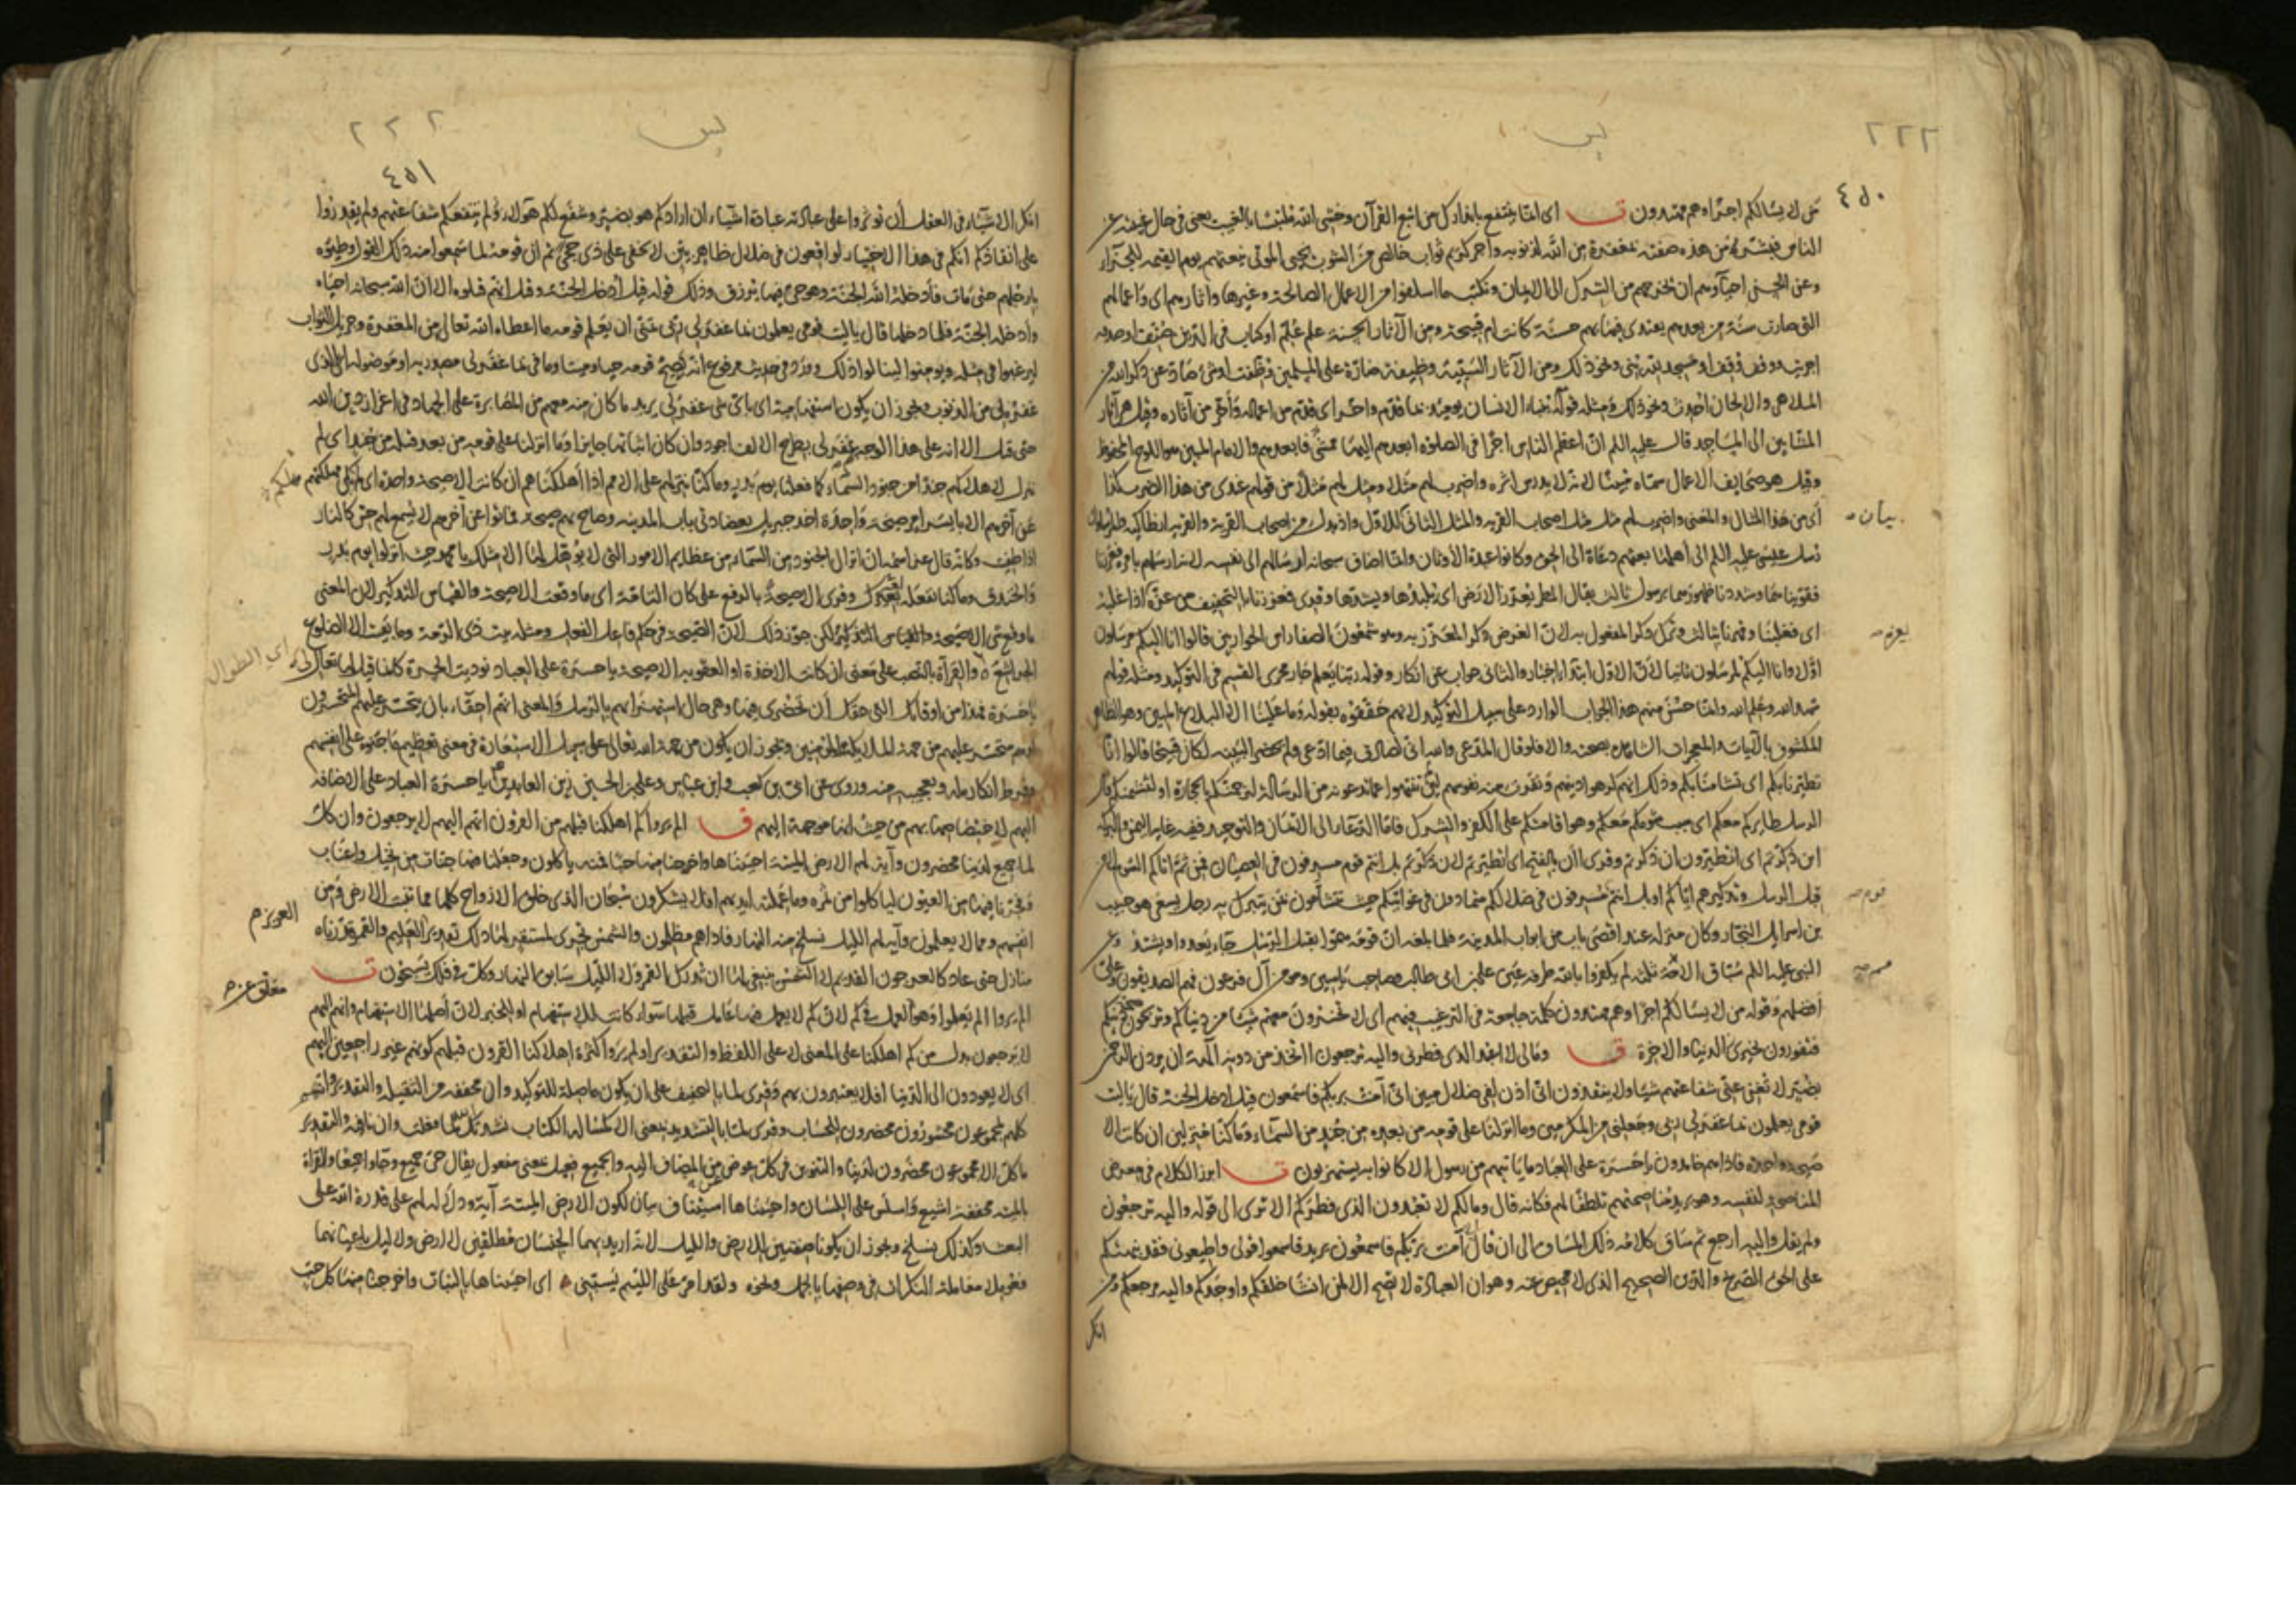 ٢٢٢
يس
٤٥٠
من لا يسالكم اجرا وهم مهتدون ق اى انما ينتفع بانذارك من اتبع القرآن وخشى الله بالغيب يعنى فى حال غيبته عن
الناس فبشر من هذه صفته بمغفرة من الله لذنوبه واجر كريم ثواب خالص من الشوب نحيى الموتى نبعثهم يوم القيمة للجزآء
وعن الحسن احياؤهم ان نخرجهم من الشرك الى الايمان ونكتب ما اسلفوا من الاعمال الصالحة وغيرها واثارهم اى واعمالهم
التى صارت سنة من بعدهم يقتدى فيها بهم حسنة كانت ام قبيحة ومن الآثار الحسنة علم علم او كتاب فى الدين صنف او صدقه
اجريت او وقف وقف او مسجد لله بنى ونحو ذلك ومن الآثار السيئة وظيفة ضارة على المسلمين وظفت او شئ صاد عن ذكر الله من
الملاهى والالحان احدث ونحو ذلك ومثله قوله ينبؤا الانسان يومئذ بما قدم واخر اى قدم من اعماله واخر من آثاره وقيل هى آثار
المشائين الى المساجد قال عليه السلم ان اعظم الناس اجرا فى الصلوة ابعدهم اليها ممشى فابعدهم والامام المبين هو اللوح المحفوظ
وقيل هو صحايف الاعمال سماه مبينا لانه لا يدرس اثره واضرب لهم مثلا ومثل لهم مثلا من قولهم عندى من هذا الضرب كذا
اى من هذا المثال والمعنى واضرب لهم مثلا مثل اصحاب القرية والمثل الثانى بيان للاول واذ بدل من اصحاب القرية والقرية انطاكيه والمرسلون
رسل عيسى عليه السلم الى اهلها بعثهم دعاة الى الحق وكانوا عبدة الاوثان وانما اضاف سبحانه ارسالهم الى نفسه لانه ارسلهم بامره فعززنا
فقوينا وشددنا ظهورهما برسول ثالث يقال المطر يعزز الارض اى يلبدها ويشدها وقرى فعززنا بالتخفيف من عزه اذا غلبه
اى فغلبنا وقهرنا بثالث وترك ذكر المفعول به لان الغرض ذكر المعزز به وهو شمعون الصفا راس الحواريين قالوا انا اليكم مرسلون
اولا وانا اليكم لمرسلون ثانيا لان الاول ابتداء اخبار والثانى جواب عن انكار وقوله ربنا يعلم جار مجرى القسم فى التوكيد ومثله قولهم
شهد الله وعلم الله وانما حسن منهم هذا الجواب الوارد على سبيل التوكيد لانهم حققوه بقوله وما علينا الا البلاغ المبين وهو الظاهر
المكشوف بالآيات والمعجزات الشاهدة بصحته والا فلو قال المدعى والله انى لصادق فيما ادعى ولم يحضر البينة لكان قبيحا قالوا انا
تطيرنا بكم اى تشامنا بكم وذلك انهم كرهوا دينهم ونفرت منه نفوسهم لئن لم تنتهوا عما تدعونه من الرسالة لنرجمنكم بالحجارة او لنشتمنكم قال
الرسل طايركم معكم اى سبب شومكم معكم وهو اقامتكم على الكفر والشرك فاما الدعاء الى الايمان والتوحيد ففيه غاية اليمن والبركه
اين ذكرتم اى اتطيرون ان ذكرتم وقرى اان بالفتح اى اتطيرتم لان ذكرتم بل انتم قوم مسرفون فى العصيان فمن ثم اتاكم الشوم لا من
قبل الرسل وتذكيرهم اياكم او بل انتم مسرفون فى ضلالكم متمادون فى غوايتكم حيث تتشأمون بمن يتبرك به رجل يسعى هو حبيب
بن اسرايل النجار وكان منزله عند اقصى باب من ابواب المدينة فلما بلغه ان قومه هموا بقتل الرسل جاء يعدو ويشتد وعن
النبى عليه السلم سباق الامم ثلثة لم يكفروا بالله طرفة عين على بن ابى طالب وصاحب ياسين ومومن آل فرعون فهم الصديقون وعلى
افضلهم وقوله من لا يسالكم اجرا وهم مهتدون كلمة جامعة فى الترغيب فيهم اى لا تخسرون معهم شيئا من دنياكم وتربحون صحة دينكم
فتفوزون بخيرى الدنيا والآخرة ق ومالى لا اعبد الذى فطرنى واليه ترجعون ااتخذ من دونه آلهة ان يردن الرحمن
بضر لا تغن عنى شفاعتهم شيئا ولا ينقذون انى اذن لفى ضلال مبين انى آمنت بربكم فاسمعون قيل ادخل الجنة قال ياليت
قومى يعلمون بما غفرلى ربى وجعلنى من المكرمين وما انزلنا على قومه من بعده من جند من السمآء وما كنا منزلين ان كانت الا
صيحة واحدة فاذا هم خامدون ياحسرة على العباد ما ياتيهم من رسول الا كانوا به يستهزؤن ق ابرز الكلام فى معرض
المناصحة لنفسه وهو يريد مناصحتهم تلطفا لهم فكانه قال ومالكم لا تعبدون الذى فطركم الا ترى الى قوله واليه ترجعون
ولم يقل واليه ارجع ثم ساق كلامه ذلك المساق الى ان قال آمنت بربكم فاسمعون يريد فاسمعوا قولى واطيعونى فقد نبهتكم
على الحق الصريح والدين الصحيح الذى لا محيص عنه وهو ان العبادة لا تصح الا لمن انشا خلقكم واوجدكم واليه مرجعكم ومن
انكر
بيان
٢٢٢
يس
٤٥١
انكر الاشياء فى العقل ان توثروا على عبادته عبادة اشياء ان ارادكم هو بضر وشفع لكم هؤلاء لم تنفعكم شفاعتهم ولم يقدروا
على انقاذكم انكم فى هذا الاختيار لواقعون فى ضلال ظاهر بين لا يخفى على ذى حجى ثم ان قومه لما سمعوا منه ذلك القول وطئوه
بارجلهم حتى مات فادخله الله الجنة وهو حى فيها يرزق وذلك قوله قيل ادخل الجنة وقيل انهم قتلوه الا ان الله سبحانه احياه
وادخله الجنة فلما دخلها قال ياليت قومى يعلمون بما غفر لى ربى تمنى ان يعلم قومه ما اعطاه الله تعالى من المغفرة وجزيل الثواب
ليرغبوا فى مثله ويومنوا لينالوا ذلك وورد فى حديث مرفوع انه نصح قومه حيا وميتا وما فى بما غفر لى مصدرية او موصولة اى بالذى
غفره لى من الذنوب ويجوز ان يكون استفهامية اى باى شى غفر لى يريد ما كان منه معهم من المصابرة على الجهاد فى اعزاز دين الله
حتى قتل الا انه على هذا الوجه بم غفر لى بطرح الالف اجود وان كان اثباتها جايزا وما انزلنا على قومه من بعد قتله من جند اى لم
ننزل لاهلاكهم جندا من جنود السمآء كما فعلنا يوم بدر وما كنا ننزلهم على الامم اذا اهلكناهم ان كانت الا صيحة واحدة اى
عن آخرهم الا بايسر امر صيحة واحدة اخذ جبريل بعضادتى باب المدينة وصاح بهم صيحة فماتوا عن آخرهم لا يسمع لهم حس كالنار
اذا طفيت وكانه قال عز اسمه ان انزال الجنود من السمآء من عظايم الامور التى لا يوهل لها الا مثلك يا محمد حيث انزلوا يوم بدر
والخندق وما كنا نفعله لغيرك وقرى الا صيحة بالرفع على كان التامة اى ما وقعت الا صيحة والقياس التذكير لان المعنى
ما وقع شى الا صيحة والقياس التذكير لكن جوز ذلك لان الصيحة فى حكم فاعل الفعل ومثله بيت ذى الرمة وما بقيت الا الضلوع
الجراشع والقرآة بالنصب على معنى ان كانت الاخذة او العقوبة الا صيحة ياحسرة على العباد نوديت الحسرة كانما قيل لها تعالى
ياحسرة فهذا من اوقاتك التى حقك ان تحضرى فيها وهى حال استهزائهم بالرسل والمعنى انهم احقاء بان يتحسر عليهم المتحسرون
او هم متحسر عليهم من جهة الملايكة والمؤمنين ويجوز ان يكون من جهة الله تعالى على سبيل الاستعارة فى معنى تعظيم ما جنوه على انفسهم
وفرط انكاره له وتعجيبه منه وروى عن ابى بن كعب وابن عباس وعلى بن الحسين زين العابدين ياحسرة العباد على الاضافة
اليهم لاختصاصها بهم من حيث انها موجهة اليهم ق الم يروا كم اهلكنا قبلهم من القرون انهم اليهم لا يرجعون وان كل
لما جميع لدينا محضرون وآية لهم الارض الميتة احييناها واخرجنا منها حبا فمنه ياكلون وجعلنا فيها جنات من نخيل واعناب
وفجرنا فيها من العيون لياكلوا من ثمره وما عملته ايديهم افلا يشكرون سبحان الذى خلق الازواج كلها مما تنبت الارض ومن
انفسهم ومما لا يعلمون وآية لهم الليل نسلخ منه النهار فاذا هم مظلمون والشمس تجرى لمستقر لها ذلك تقدير العليم والقمر قدرناه
منازل حتى عاد كالعرجون القديم لا الشمس ينبغى لها ان تدرك القمر ولا الليل سابق النهار وكل فى فلك يسبحون ق
الم يروا الم يعلموا وهو معلق عن العمل فى كم لان كم لا يعمل فيها عامل قبلها سواء كانت للاستفهام او للخبر لان اصلها الاستفهام وانهم اليهم
لا يرجعون بدل من كم اهلكنا على المعنى لا على اللفظ والتقدير اولم يروا كثرة اهلاكنا القرون قبلهم كونهم غير راجعين اليهم
اى لا يعودون الى الدنيا افلا يعتبرون بهم وقرى لما بالتخفيف على ان يكون ما صلة للتوكيد وان مخففة من الثقيلة والتقدير وانهم
كلهم لمجموعون محشورون محضرون للحساب وقرى لما بالتشديد بمعنى الا كمسالة الكتاب نشدتك بالله لما فعلت وان نافية والتقدير
ما كل الا مجموعون محضرون لدينا والتنوين فى كل عوض من المضاف اليه والجميع فعيل بمعنى مفعول يقال حى جميع وجاؤا جميعا والقرآة
بالميتة مخففة اشيع واسلس على اللسان واحييناها استيناف بيان لكون الارض الميتة آية ودلالة لهم على قدرة الله على
البعث وكذلك نسلخ ويجوز ان يكونا صفتين للارض والليل لانه اريد بهما الجنسان مطلقين لا ارض ولا ليل باعيانهما
فعوملا معاملة النكرات فى وصفهما بالجمل ونحوه ولقد امر على اللئيم يسبنى اى احييناها بالنبات واخرجنا منها كل حب
اى الطوال
العزيز م